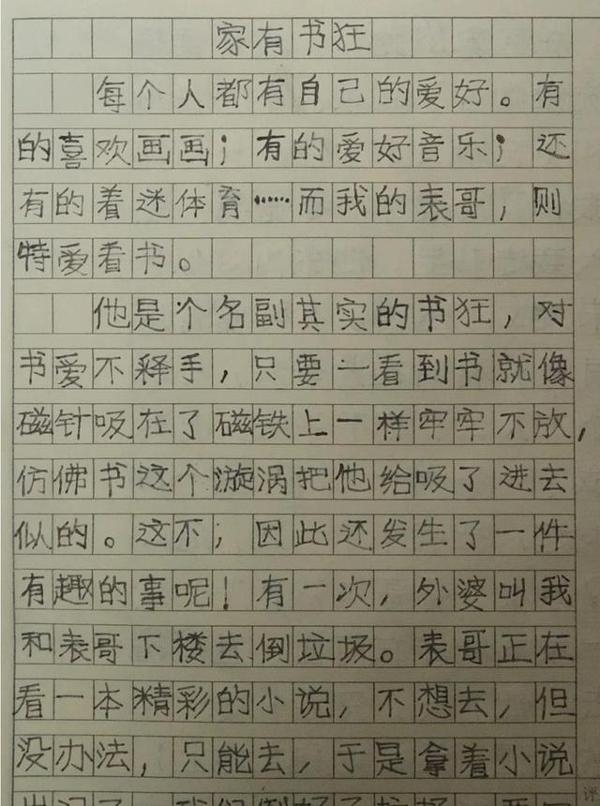 家有书狂
每个人都有自己的爱好。有
的喜欢画画；有的爱好音乐；还
有的着迷体育……而我的表哥，则
特爱看书。
他是个名副其实的书狂，对
书爱不释手，只要一看到书就像
磁针吸在了磁铁上一样牢牢不放，
仿佛书这个漩涡把他给吸了进去
似的。这不，因此还发生了一件
有趣的事呢！有一次，外婆叫我
和表哥下楼去倒垃圾。表哥正在
看一本精彩的小说，不想去，但
没办法，只能去，于是拿着小说
评